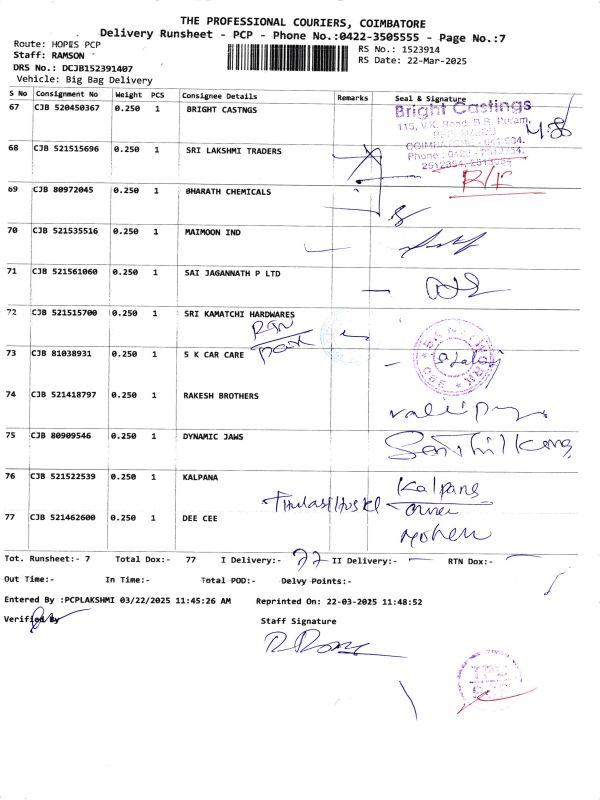 THE PROFESSIONAL COURIERS, COIMBATORE
Delivery Runsheet - PCP - Phone No.:0422-3505555 - Page No.:7
Route: HOPES PCP
RS No.: 1523914
Staff: RAMSON
RS Date: 22-Mar-2025
DRS No.: DCJB152391407
Vehicle: Big Bag Delivery
S No Consignment No Weight PCS Consignee Details Remarks Seal & Signature
67 CJB 520450367 0.250 1 BRIGHT CASTNGS
Bright Castings
115, V.K. Road, B.R. Puram,
Phone
68 CJB 521515696 0.250 1 SRI LAKSHMI TRADERS
R/F
69 CJB 80972045 0.250 1 BHARATH CHEMICALS
70 CJB 521535516 0.250 1 MAIMOON IND
71 CJB 521561060 0.250 1 SAI JAGANNATH P LTD
72 CJB 521515700 0.250 1 SRI KAMATCHI HARDWARES
73 CJB 81038931 0.250 1 5 K CAR CARE
CBE
74 CJB 521418797 0.250 1 RAKESH BROTHERS
75 CJB 80909546 0.250 1 DYNAMIC JAWS
76 CJB 521522539 0.250 1 KALPANA
Kalpana
77 CJB 521462600 0.250 1 DEE CEE
Tot. Runsheet:- 7 Total Dox:- 77 I Delivery:- 77 II Delivery:- RTN Dox:-
Out Time:- In Time:- Total POD:- Delvy Points:-
Entered By :PCPLAKSHMI 03/22/2025 11:45:26 AM Reprinted On: 22-03-2025 11:48:52
Verified By
Staff Signature